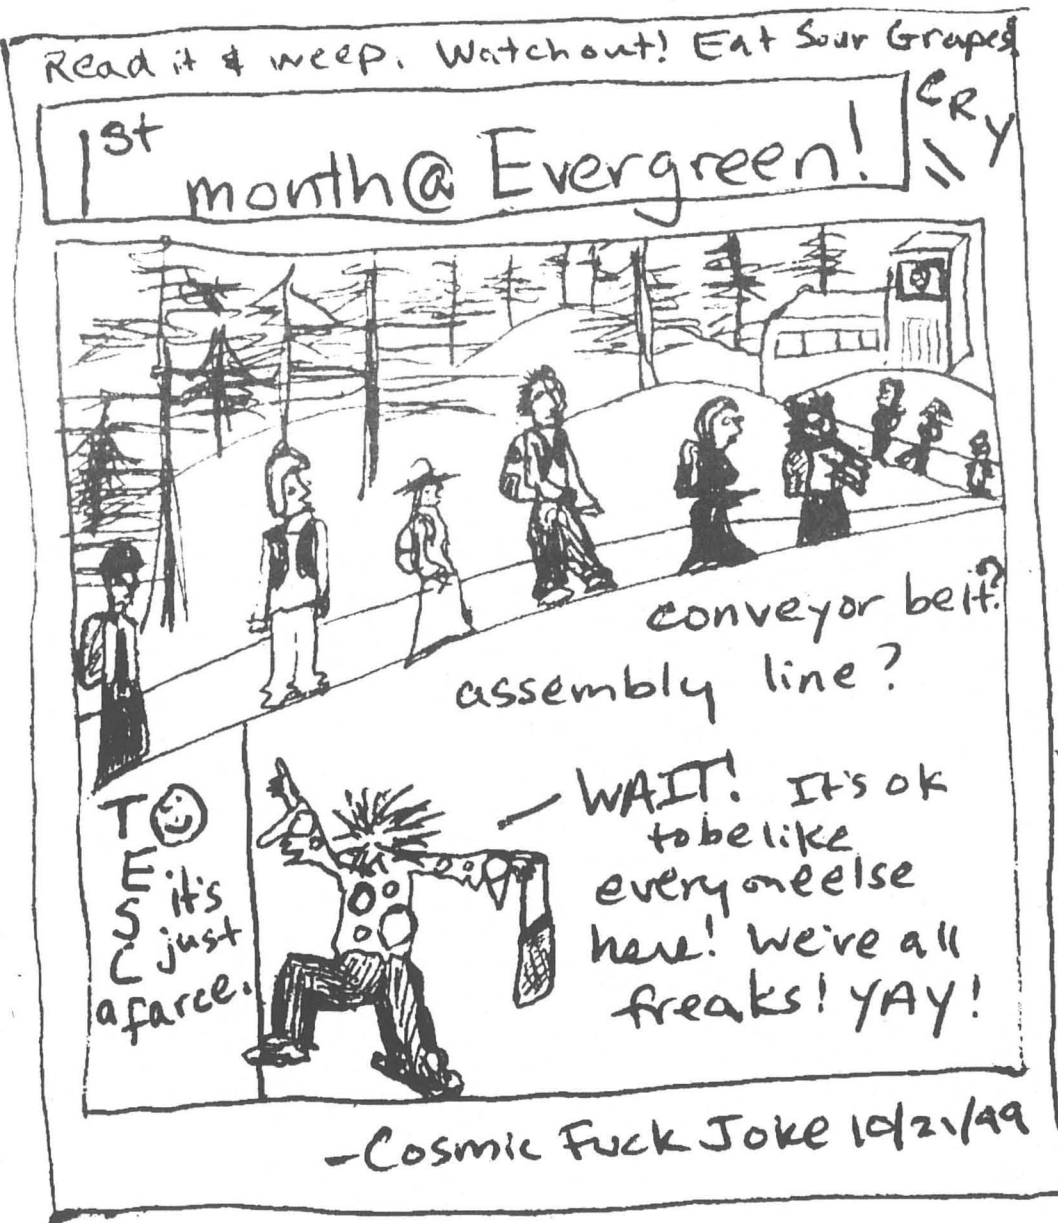 Read it & weep. Watch out! Eat Sour Grapes
CRY
1st
month@ Evergreen!
conveyor belt?
assembly line?
TESC
it's
just
a farce.
WAIT! It's ok
to be like
everyone else
here! We're all
freaks! YAY!
-Cosmic Fuck Joke 10/21/99